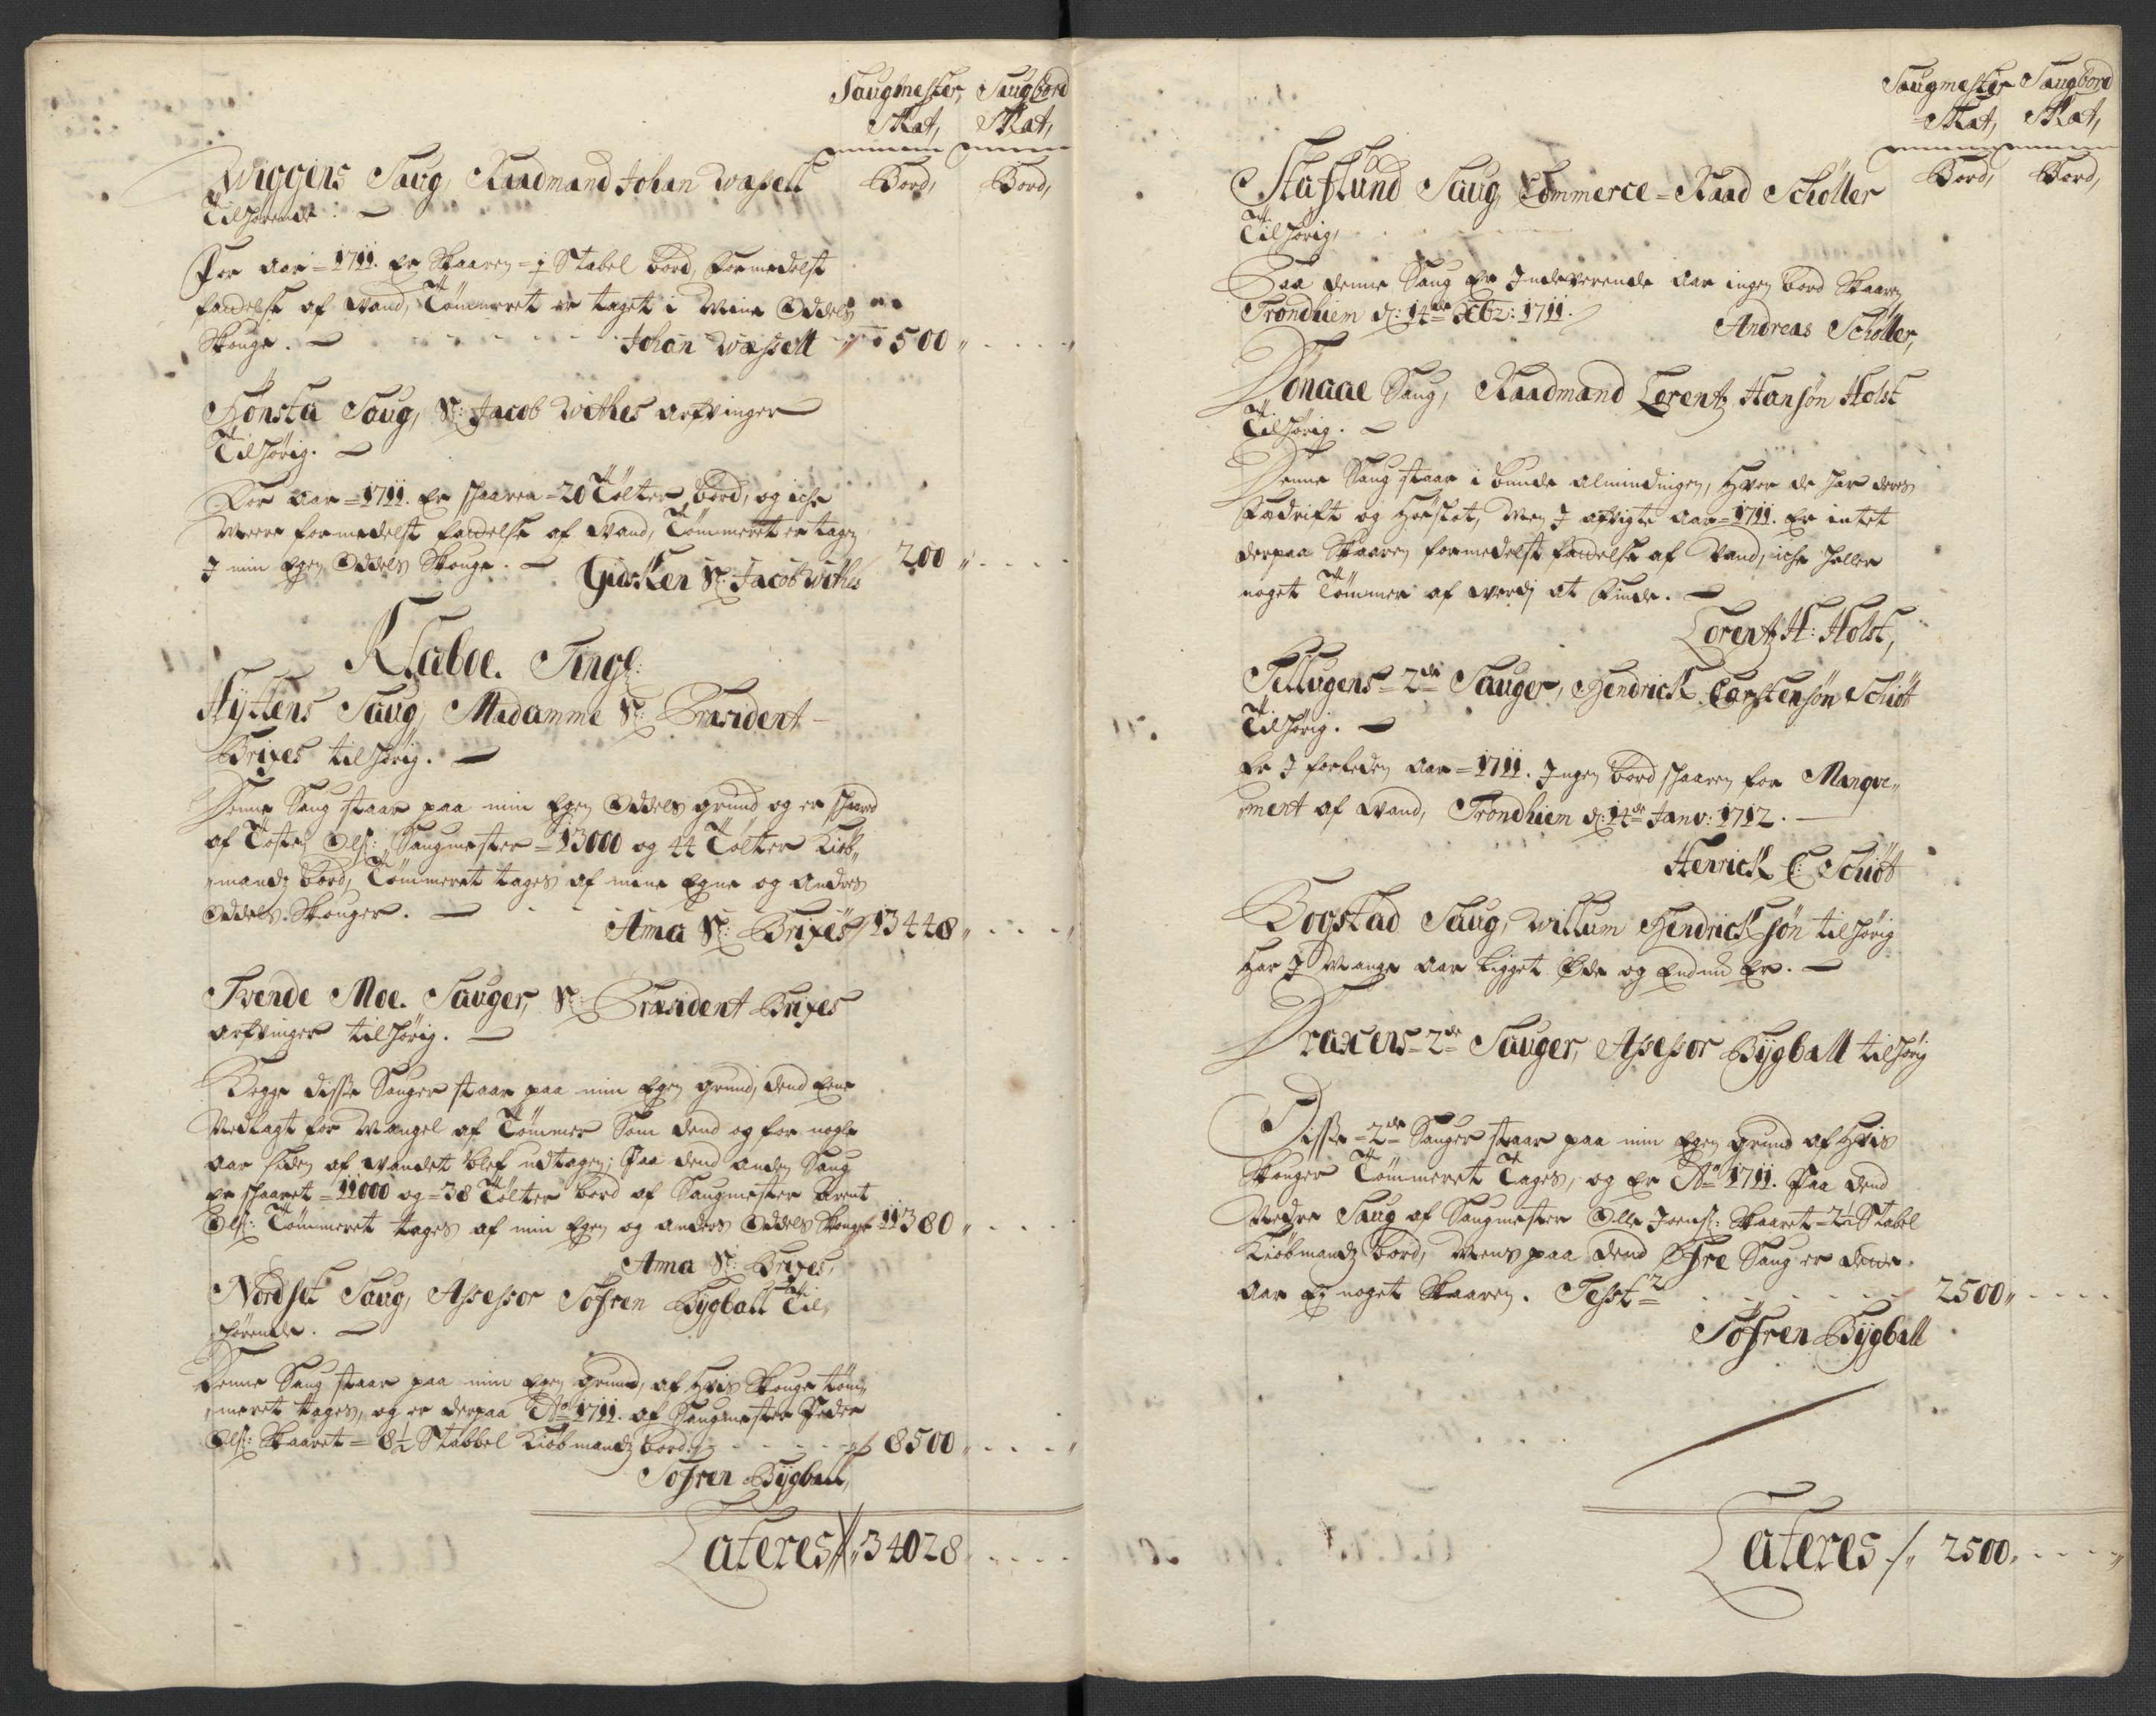 Saugmester Saugbord
Skat, Skat,
Bord, Bord,
Wiggens Saug, Raadmand Johan Wæssell
Tilhørende. 
For aar 1711. Er Skaaren ½ Stabel bord, formedelst
faadelse af Vand, Tømmeret er taget i mine Oddels
Skouge. Johan Wæssell 500
Hønsta Saug, Sl: Jacob Withes arfvinger
Tilhørig.
For aar 1711. Er skaaren 20 Tølter bord, og iche
Meere formedelst faadelse af Vand, Tømmeret er tagen
I min Egen Oddels Skouge. Giæsken Sl: Jacob Withes 200
Klæboe Tingl:
Hyttens Saug, Madamme Sl: Præsident
Brixes tilhørig.
Denne Saug staar paa min Egen Oddels grund og er skaaret
af Tosten Ols: Saugmester 13000 og 44 Tølter Kiøb„
mandz bord, Tømmeret tages af mine Egne og andres
Oddels Skouger. Anna Sl: Brixes 13448
Tvende Moe Sauger, Sl: Præsident Brixes
arfvinger tilhørig.
Begge disse Sauger staar paa min Egen grund, dend Eene
Nedlagt for Mangel af Tømmer Som dend og for nogle
aar siden af Vandet blef udtagen; Paa dend anden Saug
er skaaret 11000 og 38 Tølter bord af Saugmester Arent
Ols: Tømmeret tages af min Egen og anders Oddels Skouge 11380
Anna Sl: Brixes,
Nordset Saug, Assessor Søfren Bygball Til„
hørende.
Denne Saug staar paa min Egen Grund, af Hvis Skouge tøm„
meret tages, og er derpaa Ao 1711. af Saugmester Peder
Ols: Skaaret 8½ Stabbel Kiøbmandz bord 8500
Søfren Bygball,
Lateres 34028

Saugmester Saugbord
Skat, Skat,
Bord, Bord,
Stafsund Saug, Commerce-Raad Schøller
Tilhørig,
Paa denne Saug Er Indeværende aar ingen bord Skaaren
Trondhiem d: 14de Xbr: 1711.
Andreas Schøller,
Dønaae Saug, Raadmand Lorentz Hansøn Holst
Tilhørig.
Denne Saug staar i bunde almindingen, Hvor de har deres
Fædrift og Høeslot, Men I afvigte aar 1711. Er intet
derpaa Skaaren formedelst faadelse af Vand, iche heller
noget Tømmer af werdj at Finde.
Lorentz H: Holst,
Tellugens 2de Sauger, Hendrick Carstensøn Schiøt
Tilhørig.
Er I forleden aar 1711. Ingen bord skaaren for Manqve„
ment af Vand, Trondhiem d: 14de Janv: 1712.
Henrick C: Schiøt
Bogstad Saug, Willum Hendricksøn tilhørig
Har I Mange aar ligget Øde og Endnu Er.
Draxens 2de Sauger, Assessor Bygball tilhørig
Disse 2de Sauger staar paa min Egen Grund af Hvis
Skouger Tømmeret Tages, og Er Ao 1711. Paa dend
Nedre Saug af Saugmester Olle Joens: Skaaret 2½ Stabel
Kiøbmandz bord, Mens paa dend Øfre Saug er dette
aar Ej noget Skaaren. Test 2500
Søfren Bygball
Lateres 2500